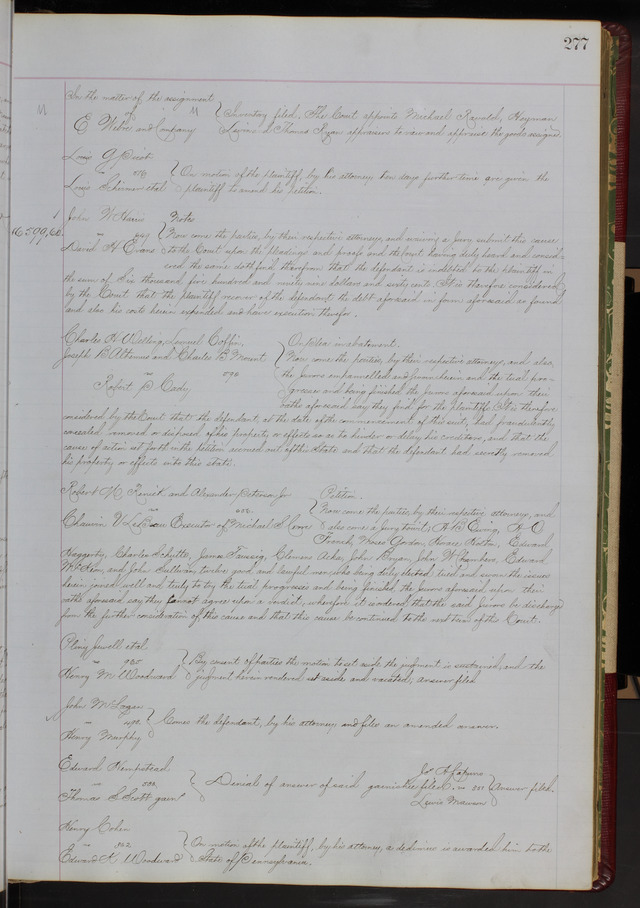 277
In the matter of the assignment
of
E Weber and Company } Inventory filed. The Court appoints Michael Heyman
Levin & Thomas Ryan appraisers to view and appraise the goods assigned.
Louis G Picot
vs 216
Louis et al } On motion of the plaintiff, by his attorney ten days further time are given the
plaintiff to amend his petition.
1
John W Harris Note
$6599,60
vs
David H Evans } Now come the parties, by their respective attorneys, and waiving a Jury submit this cause
to the Court upon the pleadings and proofs and the Court having duly heard and consid-
ered the same doth find therefrom that the defendant is indebted to the plaintiff in
the sum of Six thousand five hundred and ninety nine dollars and sixty cents. It is therefore considered
by the Court that the plaintiff recover of the defendant the debt aforesaid in form aforesaid as found
and also his costs herein expended and have execution therefor.
Charles H Welling, Lemuel Coffin, On plea in abatement.
Joseph B Altemus and Charles B Mount
vs 590
Robert B Cady } Now come the parties, by their respective attorneys, and also
the Jurors empannelled and sworn herein and the trial pro-
gresses and being finished the Jurors aforesaid upon their
oaths aforesaid say they find for the plaintiffs. It is therefore
considered by the Court that the defendant, at the date of the commencement of this suit, had fraudulently
concealed removed or disposed of his property or effects so as to hinder or delay his creditors, and that the
cause of action set forth in the petition accrued out of this State and that the defendant had secretly removed
his property or effects into this state.
Robert M and Alexander Peterson Jr Petition.
vs
Executor of Michael S Cerre } Now come the parties, by their respective attorneys, and
also come a Jury towit, A B Ewing, H O
French, Gordon, Horace Edward
Haggerty, Charles Schultz, James Taussig, Clemens John Bryan, John W Chambers, Edward
and John Sullivan, twelve good and lawful men, who being duly elected tried and sworn the issues
herein joined well and truly to try the trial progresses and being finished the Jurors aforesaid upon their
oaths aforesaid say they cannot agree upon a verdict, wherefore it is ordered that the said Jurors be discharged
from the further consideration of this cause and that this cause be continued to the next term of this Court.
Pliny Jewell et al
vs 985
Henry M Woodward } By consent of parties the motion to set aside the judgment is sustained, and the
judgment herein rendered set aside and vacated; answer filed
John M Logan
vs
Henry Murphy } Comes the defendant, by his attorney and files an amended answer.
Edward Hempstead
vs
Thomas S Scott garn' } Denial of answer of said garnishee filed.
vs
Lewis } Answer filed.
Henry Cohen
vs 802
Edward K Woodward } On motion of the plaintiff, by his attorney, a dedimus is awarded him to the
State of Pennsylvania.